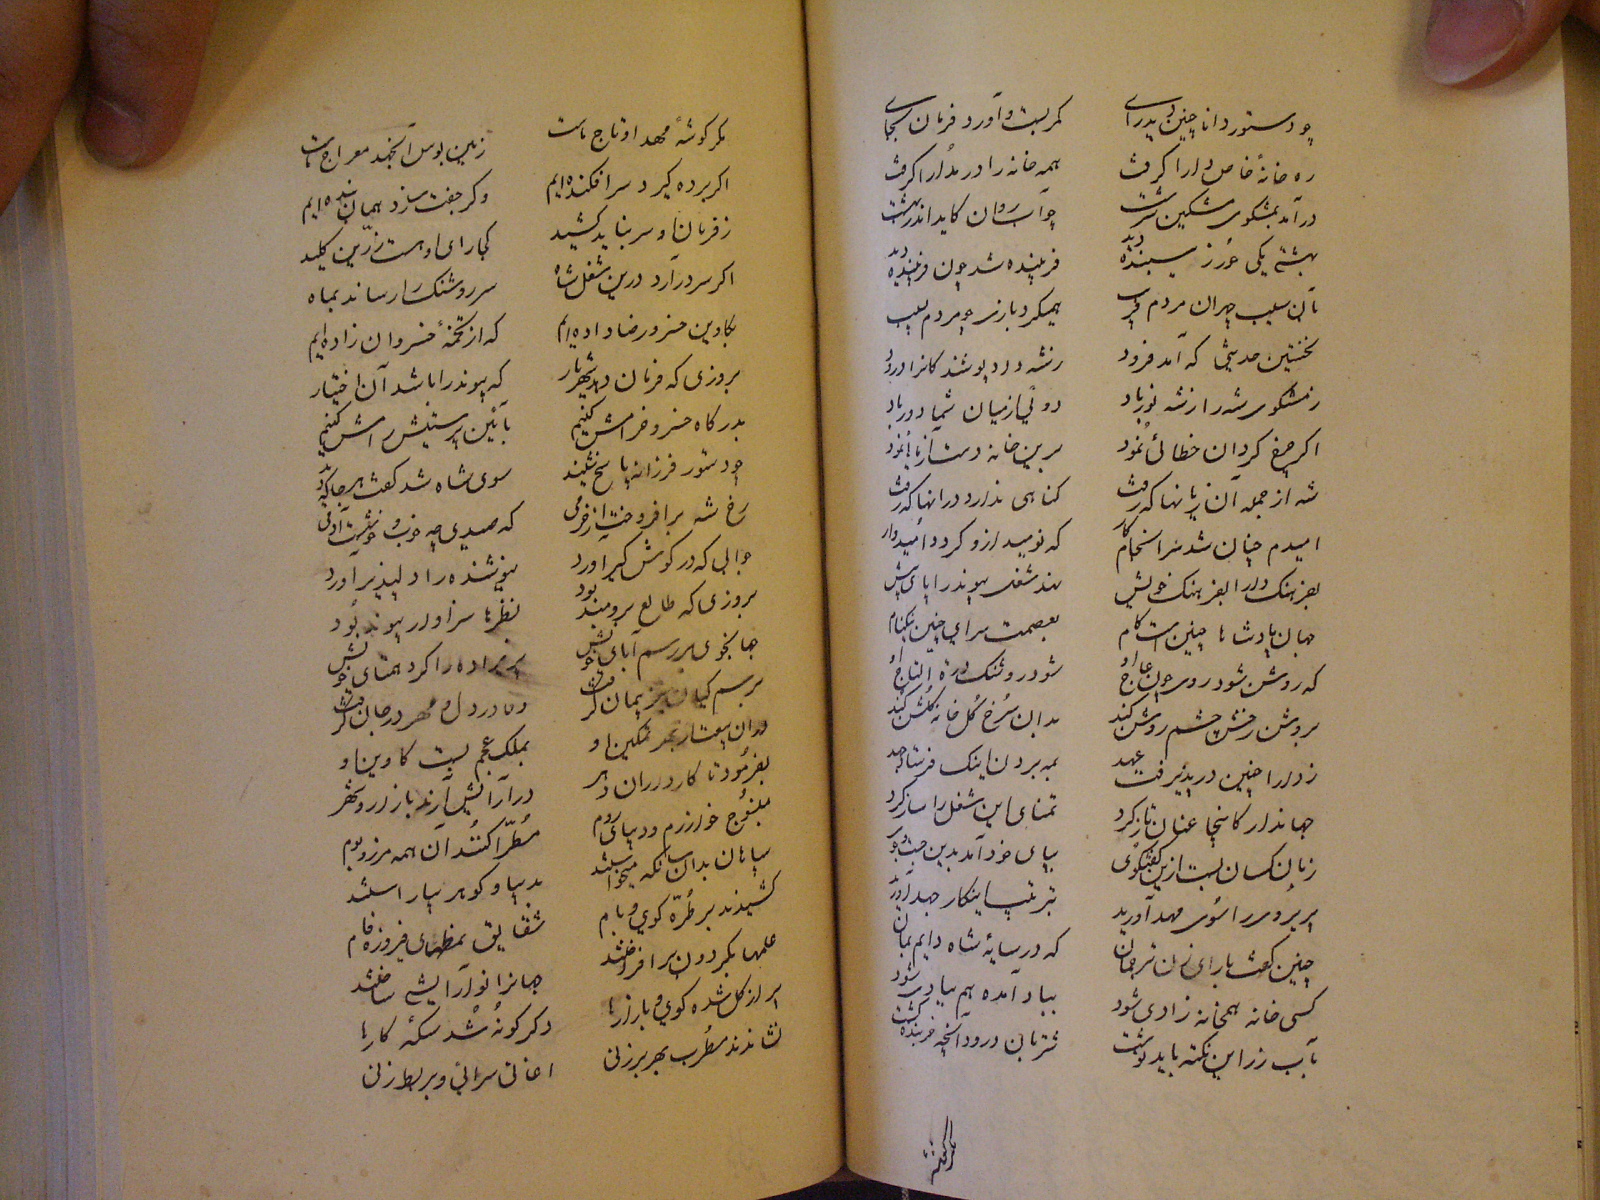 چو دستور دانا چنین دید رای کمر بست و آورد فرمان بجای
ره خانهٔ خاص دارا گرفت همه خانه را در مدارا گرفت
درآمد بمشکوی مشکین سرشت چو آب روان کاید اندر بهشت
بهشتی یکی حور زیبنده دید فریبنده شد چون فریبنده دید
بآن سیب چهران مردم فریب همیکرد بازی چو مردم بسیب
نخستین حدیثی که آمد فرود ز شه داد پوشیدگانرا درود
ز مشکوی شه را ز شه نور باد دوئی از میان شما دور باد
اگر چرخ گردان خطائی نمود برین خانه دست آزمائی نمود
شه از جمله آن زیانها که رفت گناهی ندارد در آنها که رفت
امیدم چنان شد سرانجام کار که نومید ازو گردد امیدوار
بفرهنگ دارا بفرهنگ خویش نهد شغل پیوند را پای پیش
جهان پادشا را چنین است کام بعصمت سرای چنین نیکنام
که روشن شود روی چون عاج او شود روشنک درة التاج او
بروشن رخش چشم روشن کند بدان سرخ گل خانه گلشن کند
ز دارا چنین در پذیرفت عهد به بردن اینک فرستاد مهد
جهاندار کاینجا عنان تاز کرد تمنای این شغل را ساز کرد
زبان کسان بست ازین گفتگوی بپای خود آمد بدین جستجوی
پریروی را سوی مهد آورید بترتیب اینکار جهد آورید
چنین گفت با رای زن ترجمان که در سایهٔ شاه دایم بمان
کسی خانه همخانه زادی شود بباد آمده هم بباد شود
بآب زر این نکته باید نوشت شتربان درود آنچه خربنده کشت
مگر گوشهٔ مهد او تاج ماست زمین بوس آنچهد معراج ماست
اگر برده گیرد سرافکنده‌ایم وگر جفت سازد همان بنده‌ایم
ز فرمان او سر نباید کشید کجا رای او هست زرین کلید
اگر سر درآرد درین شغل شاه سر روشنک را رساند بماه
بکاوین خسرو رضا داده‌ایم که از تخمهٔ خسروان زاده‌ایم
بروزی که فرمان دهد شهریار که پیوند را باشد آن اختیار
بدرگاه خسرو خرامش کنیم بآئین پرستیش رامش کنیم
چو دستور فرزانه پاسخ شنید سوی شاه شد گفت هر جا که دید
رخ شه برافروخت از خرمی که صیدی چه خوب و خوشست آدمی
جوابی که در گوش گیر آورد نیوشنده را دلپذیر آورد
بروزی که طالع برومند بود نظرها سزاوار پیوند بود
جهانجوی بر رسم آبای خویش پریزاده را کرد همتای خویش
برسم کیان نیز پیمان گرفت وفا در دل و مهر در جان گرفت
بدان بیعت از بهر تمکین او بملک عجم بست کاوین او
بفرمود تا کاردانان دهر در آرایش آرند بازار و شهر
بمنسوج خوارزم و دیبای روم مطرا کنند آن همه مرز و بوم
سپاهان بدانسانکه میخواستند بدیبا و گوهر بیاراستند
کشیدند بر طره کوی و بام شقایق نمطهای فیروزه فام
علمها بگردون برافراختند جهانرا نوآرایشی ساختند
پر از گل شده کوی و بازارها دگرگونه شد سکهٔ کارها
نشاندند مطرب بهر برزنی اغانی سرائی و بربط زنی